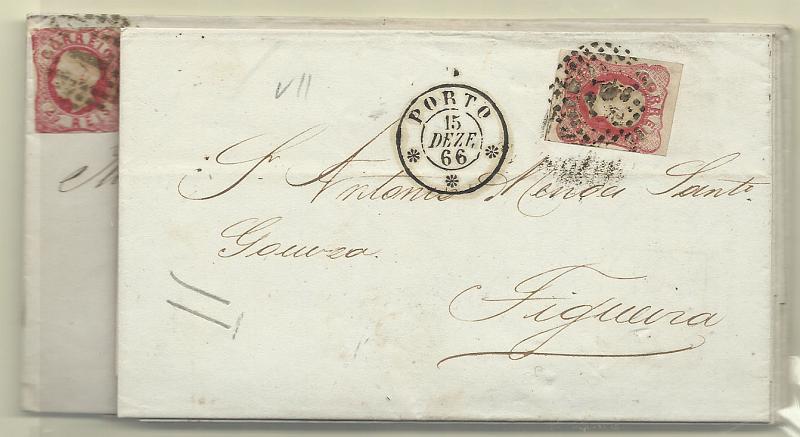 CORREIO
REIS
VII
PORTO
15
DEZE
66
CORREIO
Sr. Antonio Mendes Santo
Gouvea.
Figueira